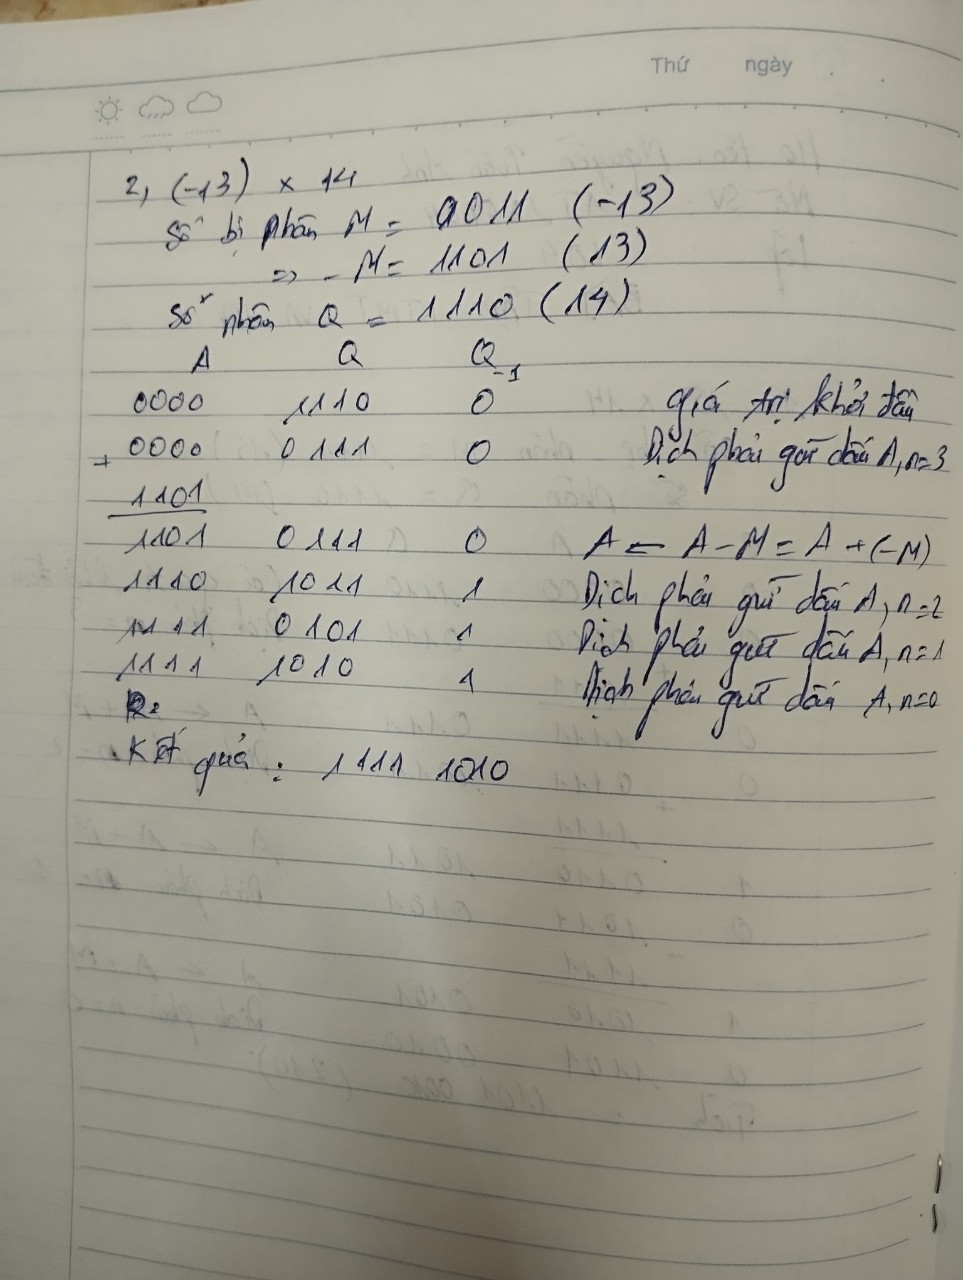 Thứ ngày
2, (-13) x 14
Số bị nhân M = 0011 (-13)
=> -M = 1101 (13)
Số nhân Q = 1110 (14)
A Q Q-1
0000 1110 0 giá trị khởi đầu
+ 0000 0111 0 Dịch phải giữ dấu A, n=3
1101
1101 0111 0 A ← A - M = A + (-M)
1110 1011 1 Dịch phải giữ dấu A, n=2
1111 0101 1 Dịch phải giữ dấu A, n=1
1111 1010 1 Dịch phải giữ dấu A, n=0
Kết quả : 1111 1010